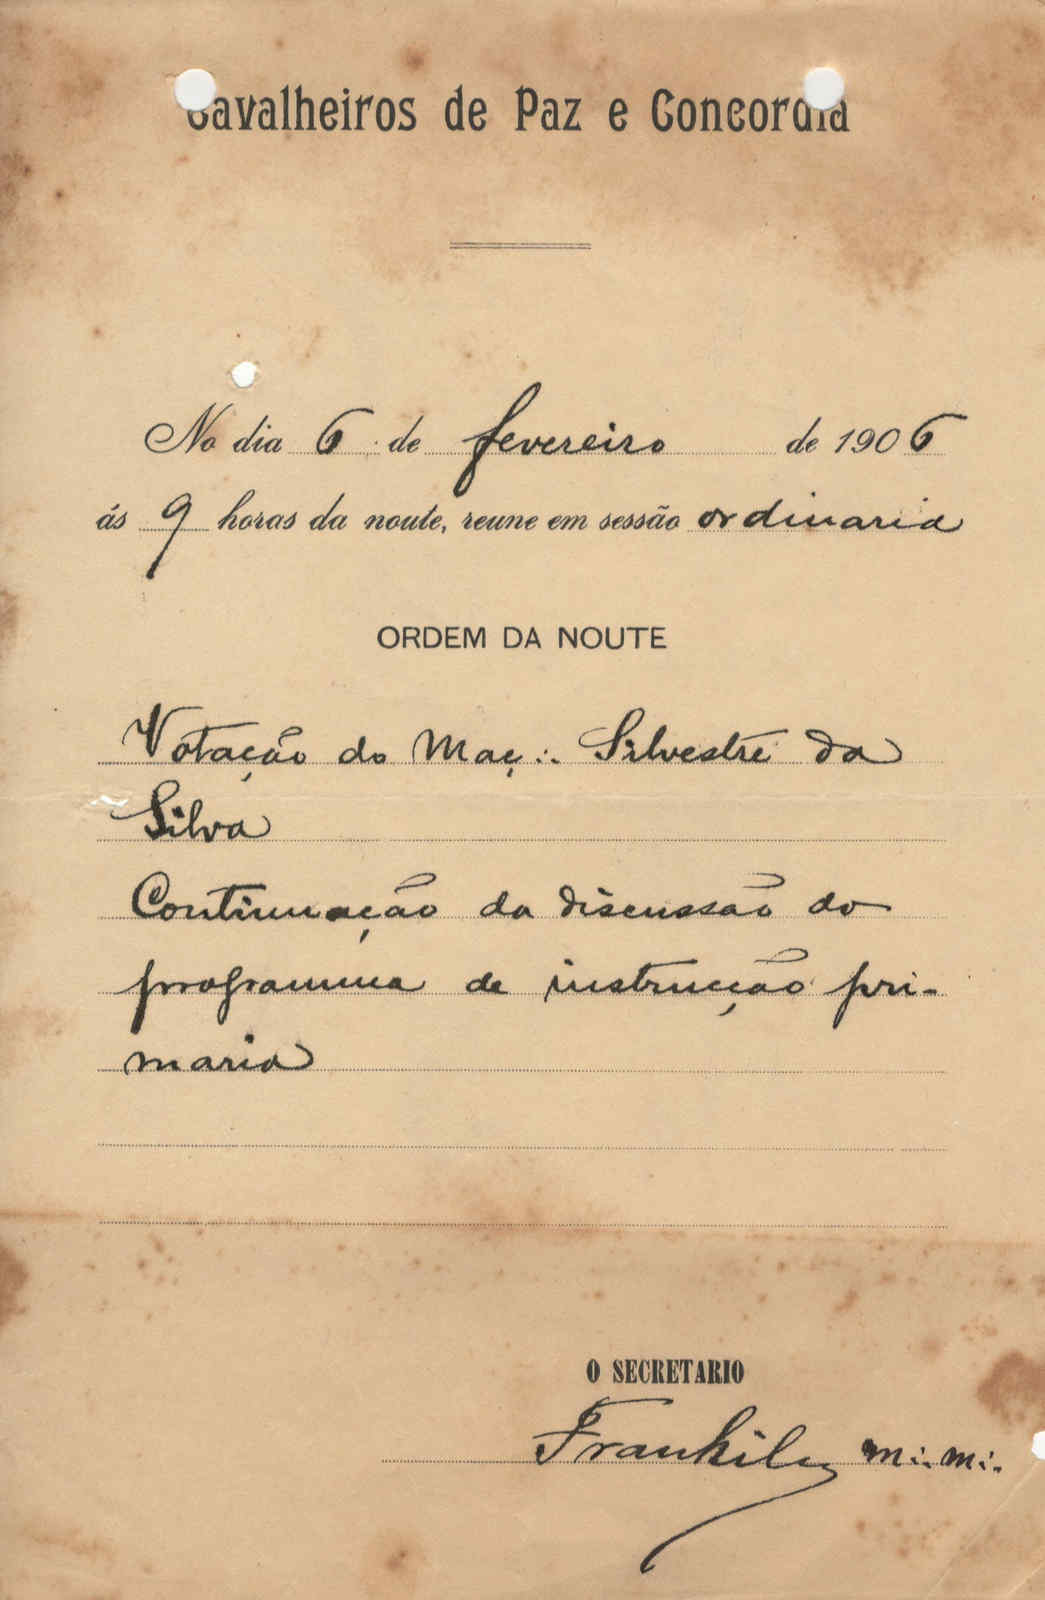 Cavalheiros de Paz e Concordia
No dia 6 de fevereiro de 1906
ás 9 horas da noute, reune em sessão ordinaria
ORDEM DA NOUTE
Votação do Maç∴ Silvestre da
Silva
Continuação da discussão do
programma de instrucção pri-
maria
O SECRETARIO
M∴ M∴